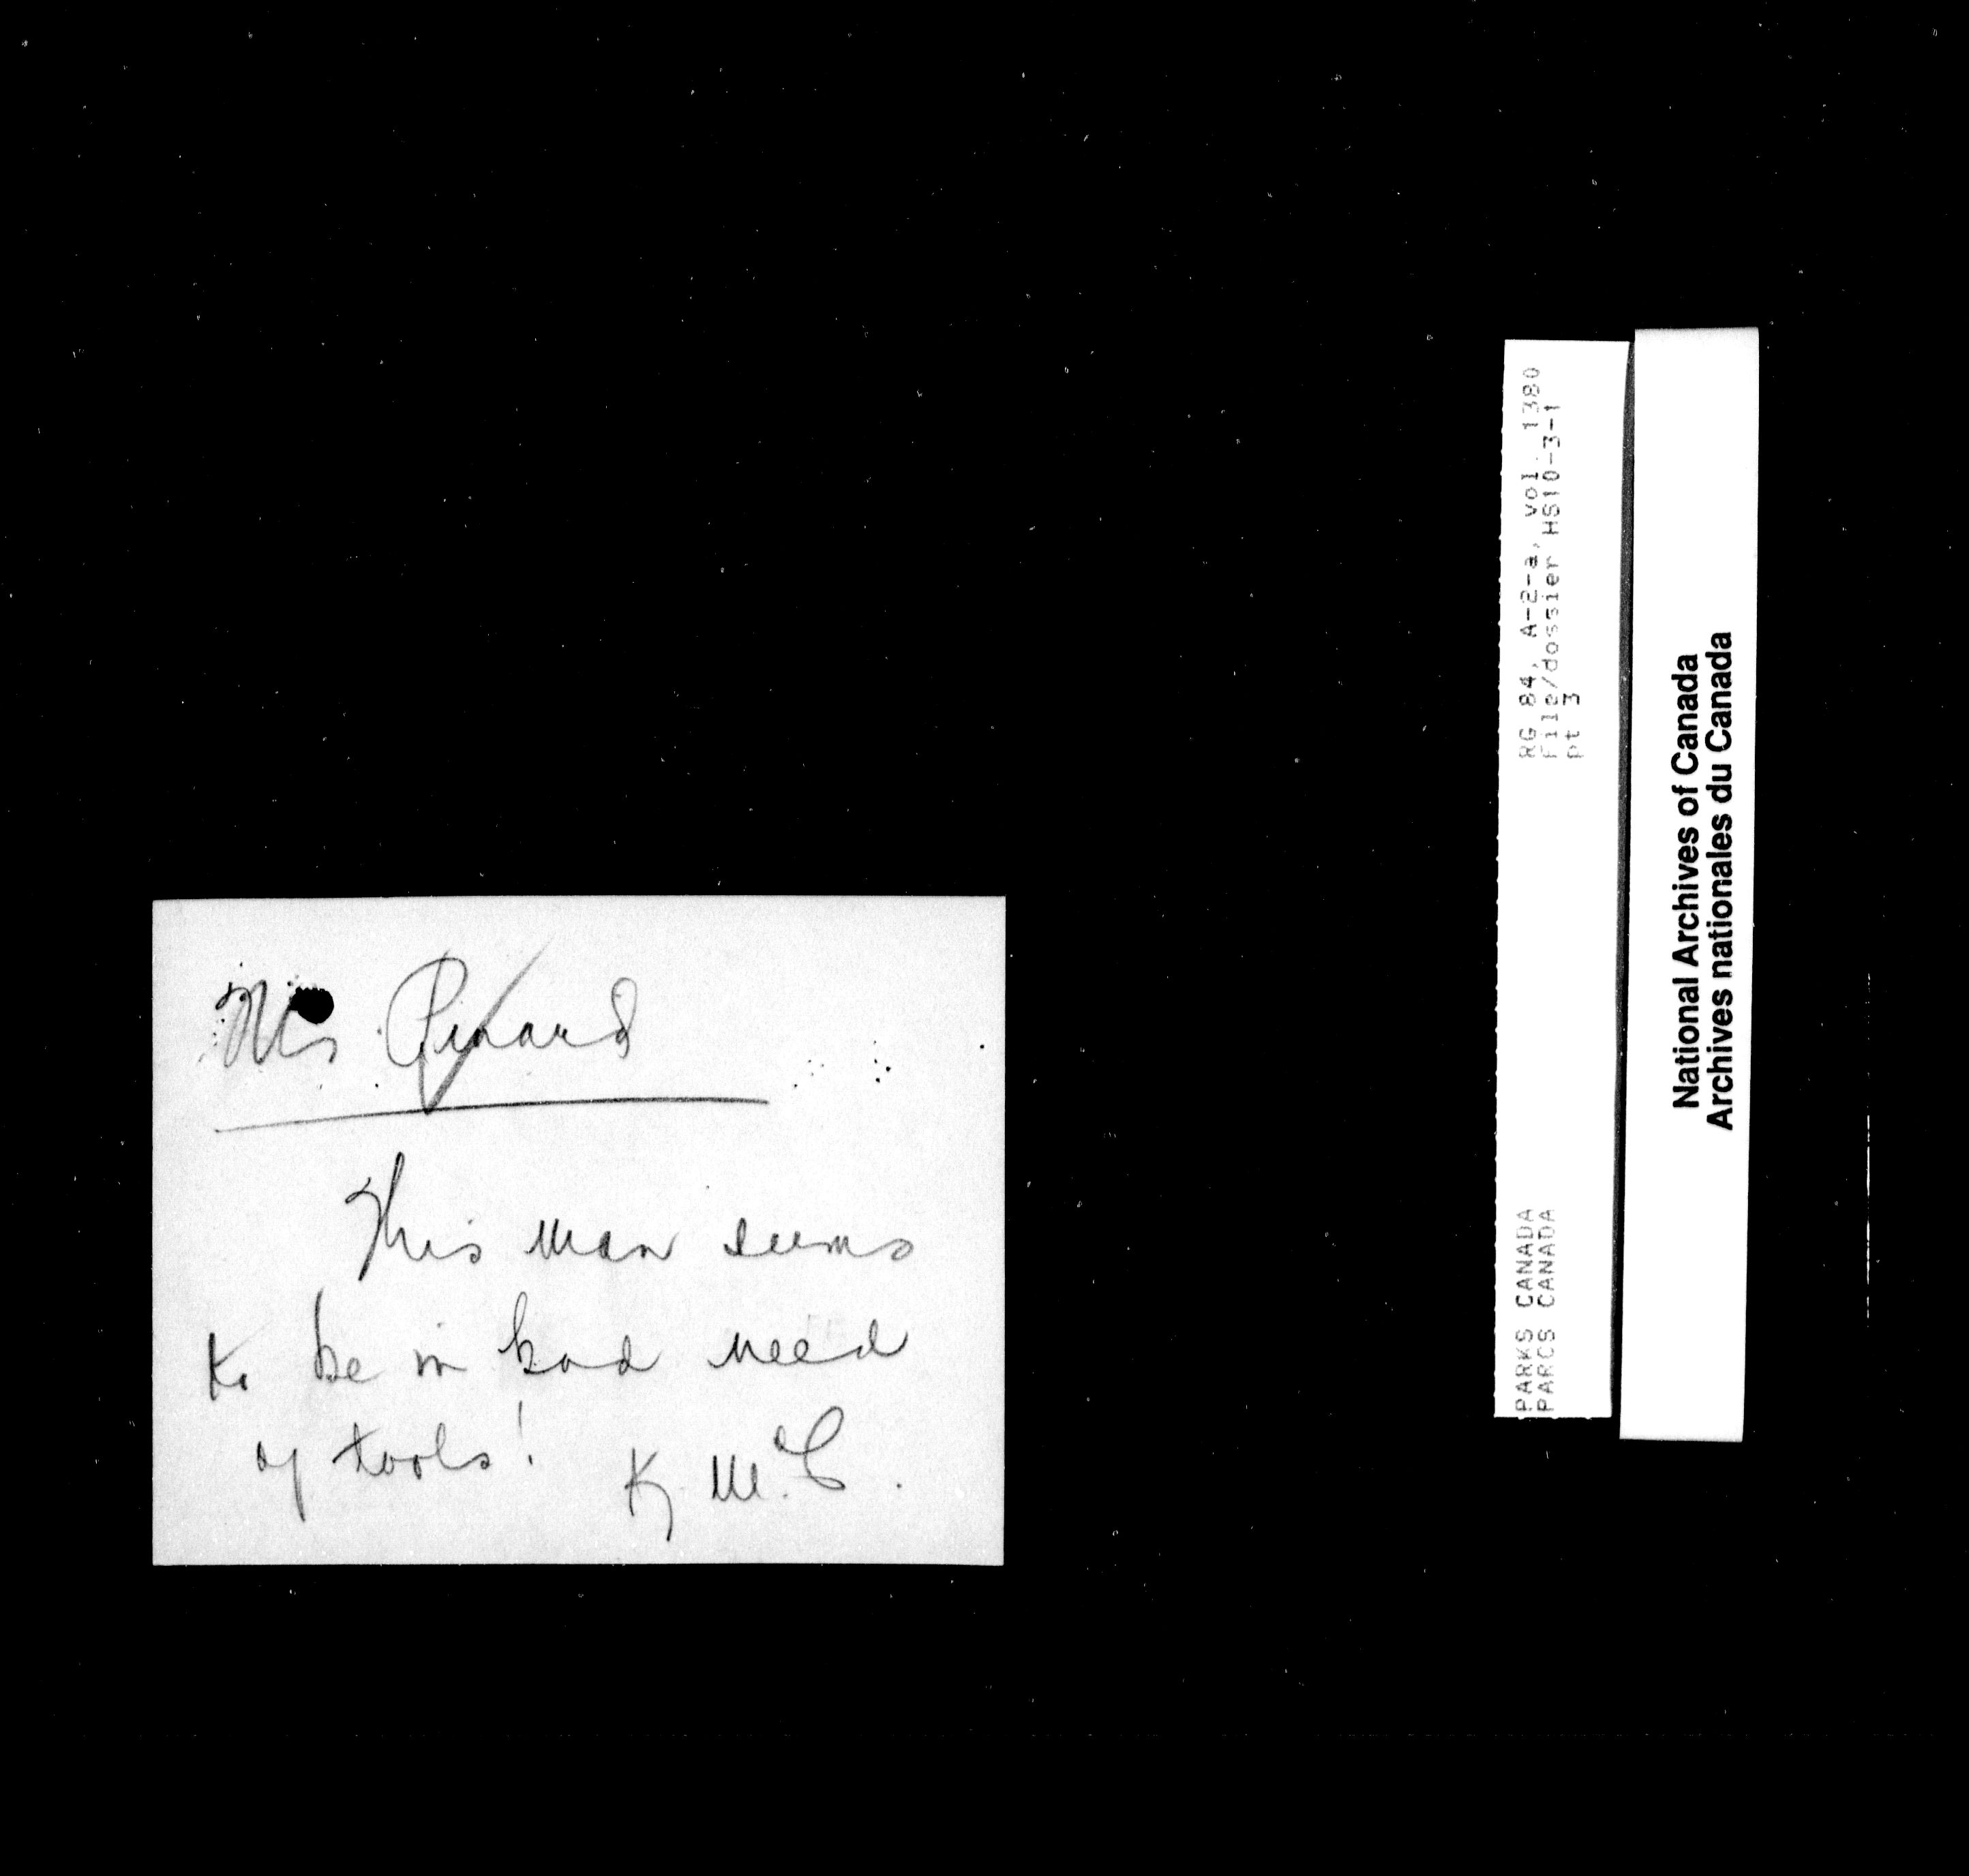 Mrs Pinard
This man seems
to be in bad need
of tools! K. McC.
RG 84, A-2-a, vol. 1380
File/dossier HS10-3-1
pt 3
PARKS CANADA
PARCS CANADA
National Archives of Canada
Archives nationales du Canada